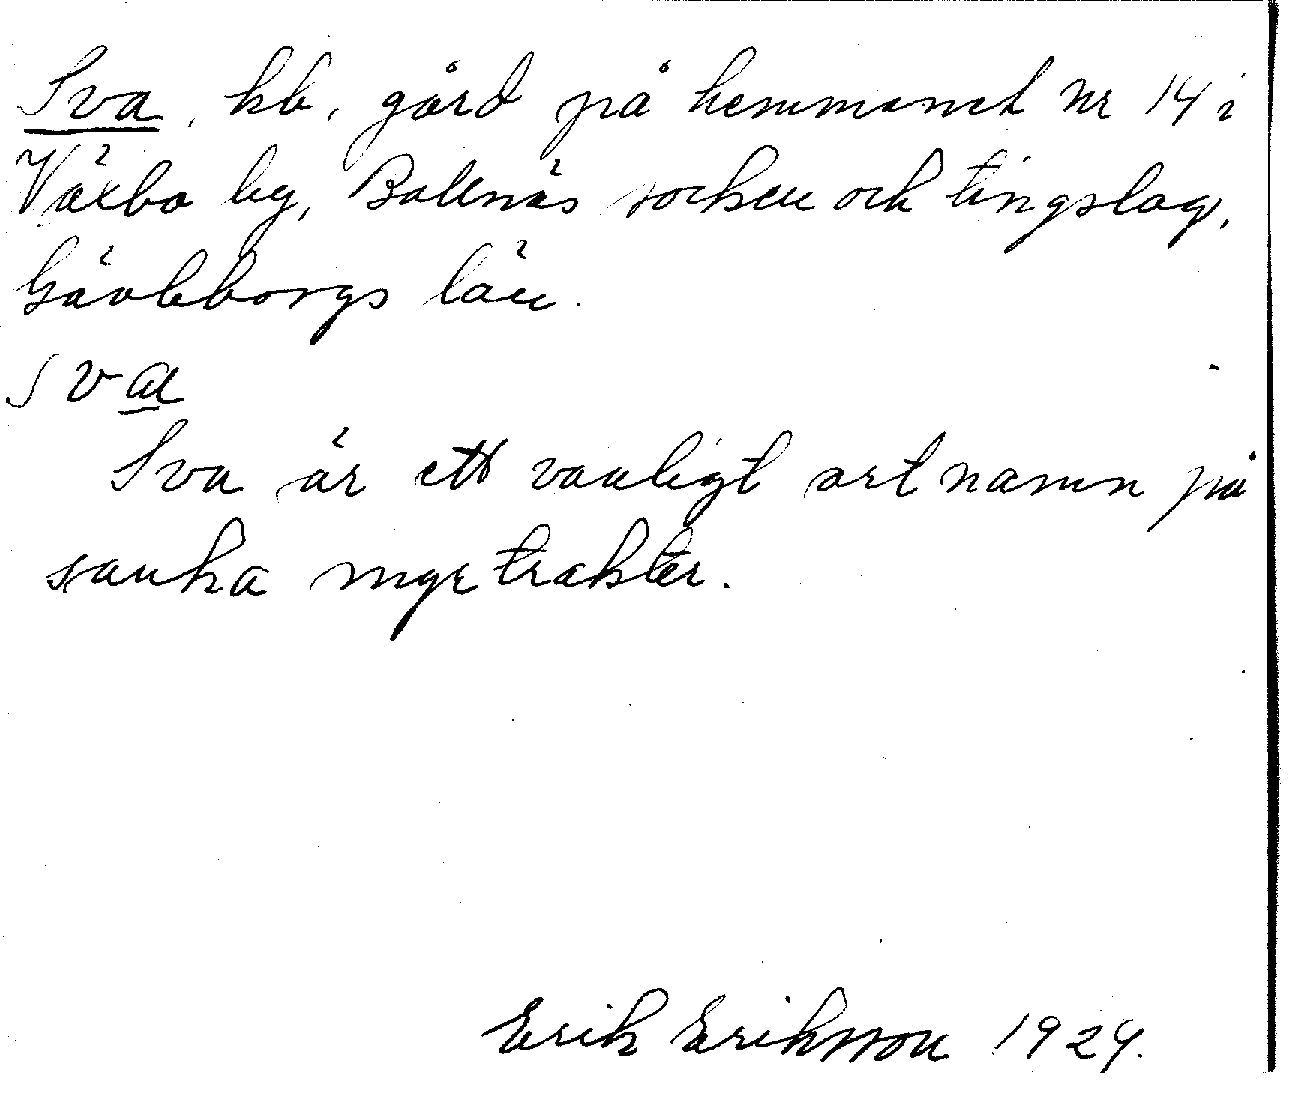 Sva, kb, gård på hemmanet nr 14 i
Växbo by, Bollnäs socken och tingslag,
Gävleborgs län.
sva
Sva är ett vanligt ortnamn på
sanka myrtrakter.
Erik Eriksson 1929.